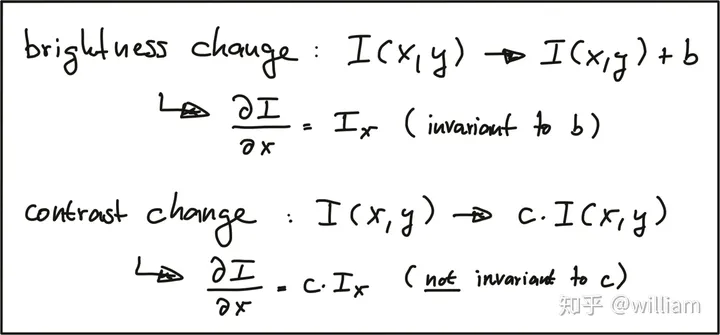 brightness change : I(x,y) → I(x,y) + b
↳ ∂I/∂x = Iₓ (invariant to b)
contrast change : I(x,y) → c·I(x,y)
↳ ∂I/∂x = c·Iₓ (not invariant to c)
知乎 @william